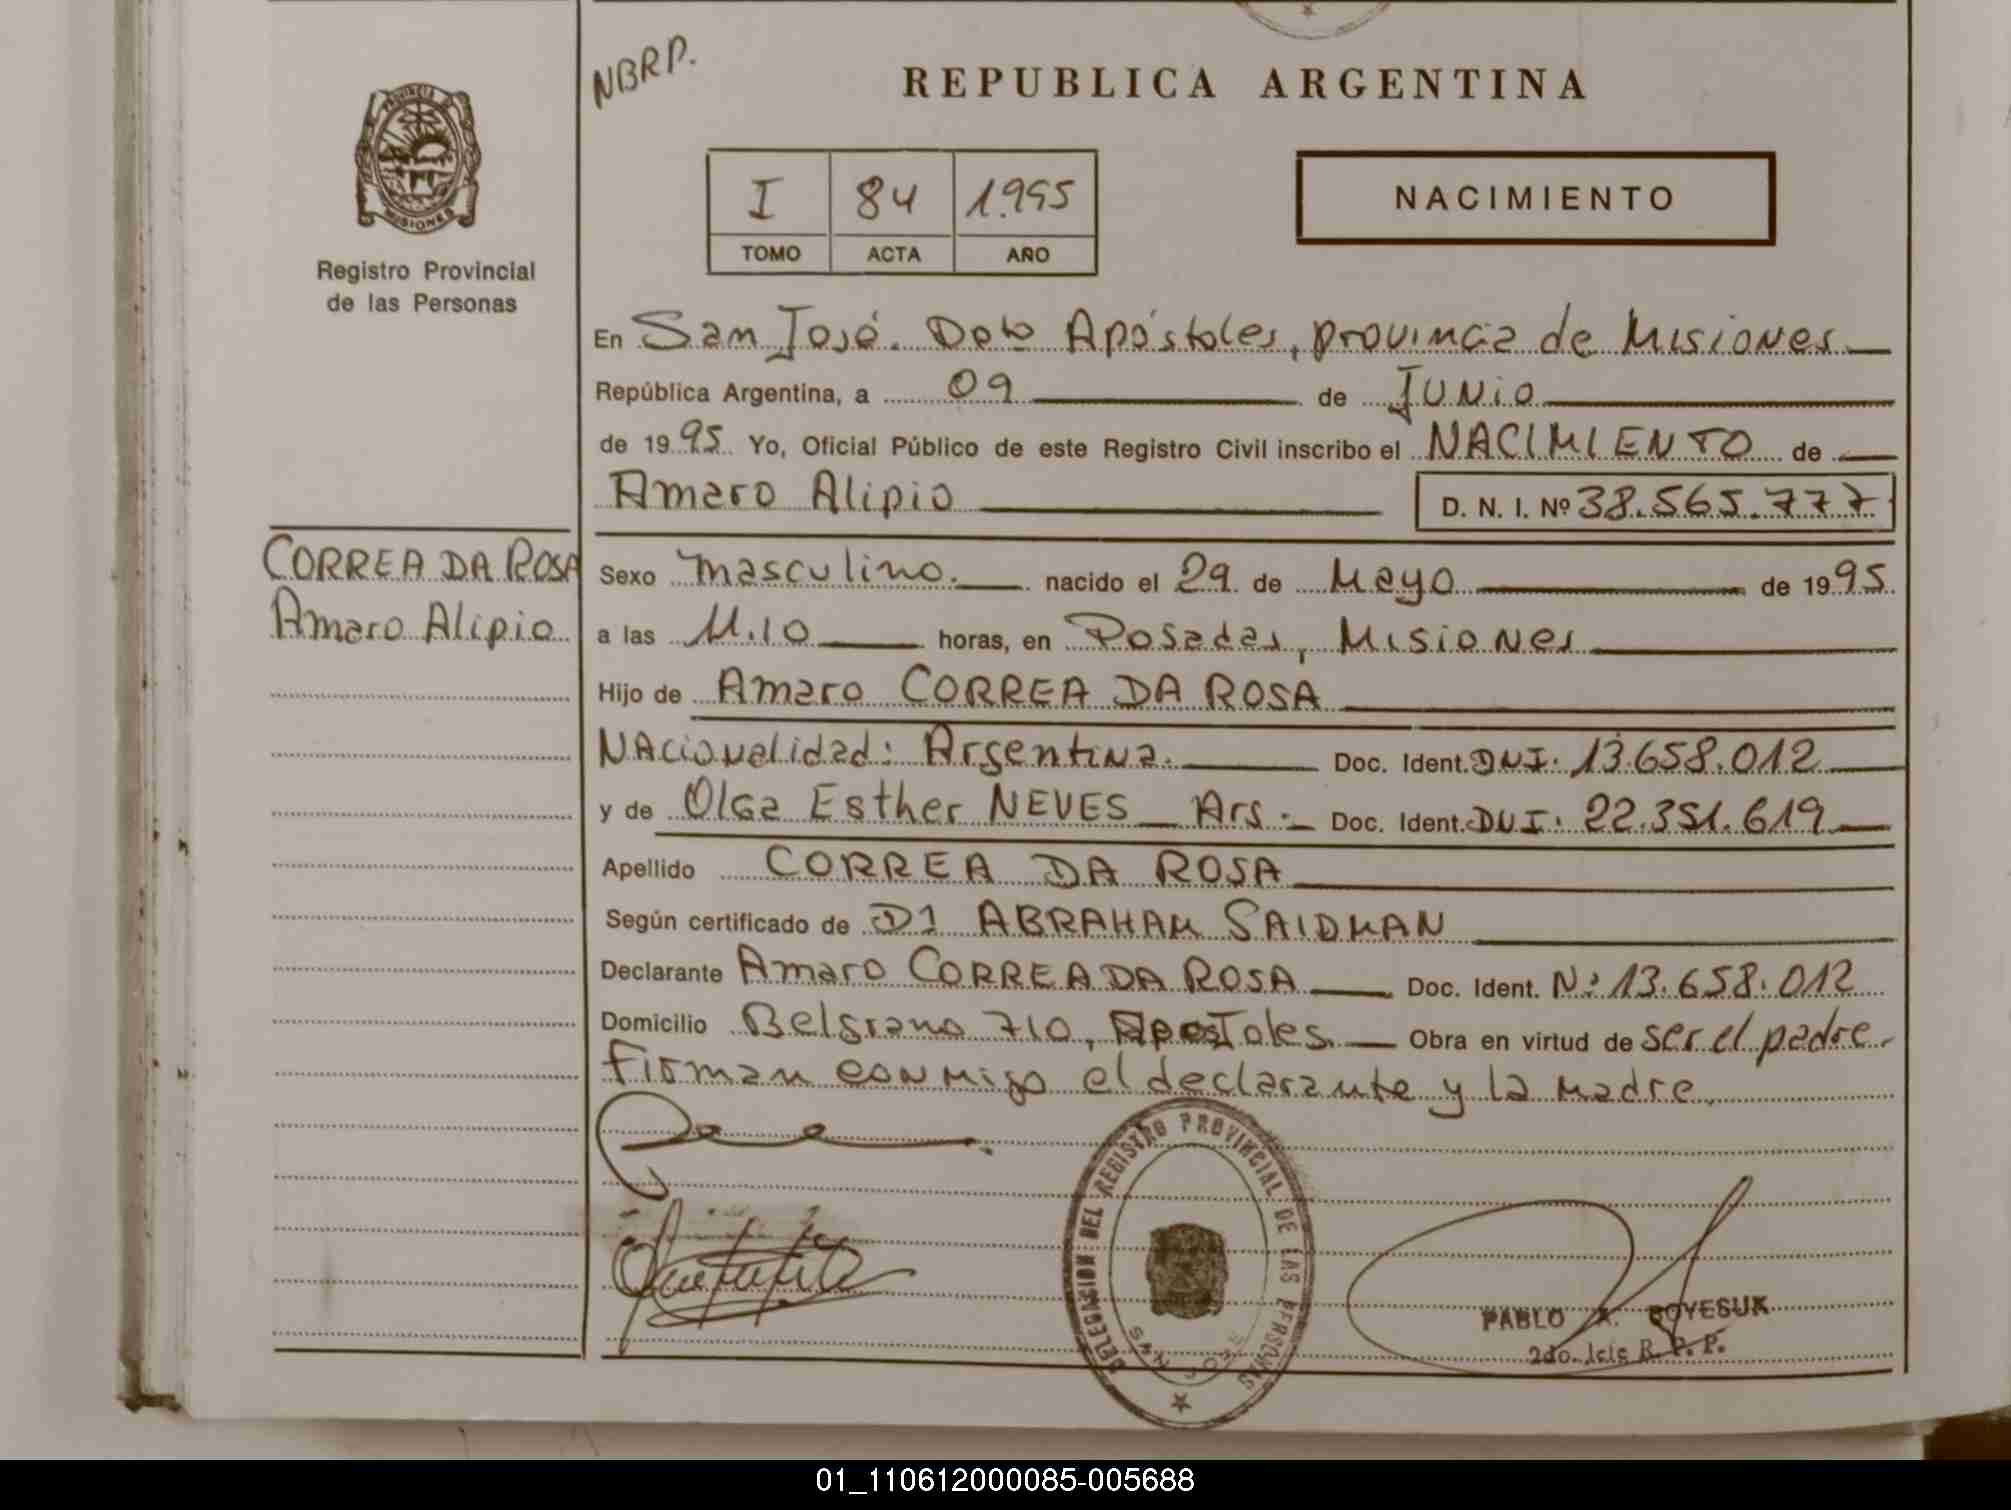 NBRP.
REPUBLICA ARGENTINA
PROVINCIA
MISIONES
Registro Provincial
de las Personas
I 84 1.995
TOMO ACTA AÑO
NACIMIENTO
En San José. Dpto Apóstoles, provincia de Misiones
República Argentina, a 09 de Junio
de 1995. Yo, Oficial Público de este Registro Civil inscribo el NACIMIENTO de
Amaro Alipio D. N. I. Nº 38.565.777
CORREA DA ROSA
Amaro Alipio
Sexo masculino. nacido el 29 de Mayo de 1995
a las 11.10 horas, en Posadas, Misiones
Hijo de Amaro CORREA DA ROSA
Nacionalidad: Argentina. Doc. Ident. DNI. 13.658.012
y de Olga Esther NEVES Arg. Doc. Ident. DNI. 22.351.619
Apellido CORREA DA ROSA
Según certificado de D1 ABRAHAM SAIDMAN
Declarante Amaro CORREA DA ROSA Doc. Ident. Nº 13.658.012
Domicilio Belgrano 710, Apostoles. Obra en virtud de ser el padre.
Firman conmigo el declarante y la madre.
DELEGACION DEL REGISTRO PROVINCIAL DE LAS PERSONAS
PABLO A. BOYESUK
2do. R. P. P.
01_110612000085-005688